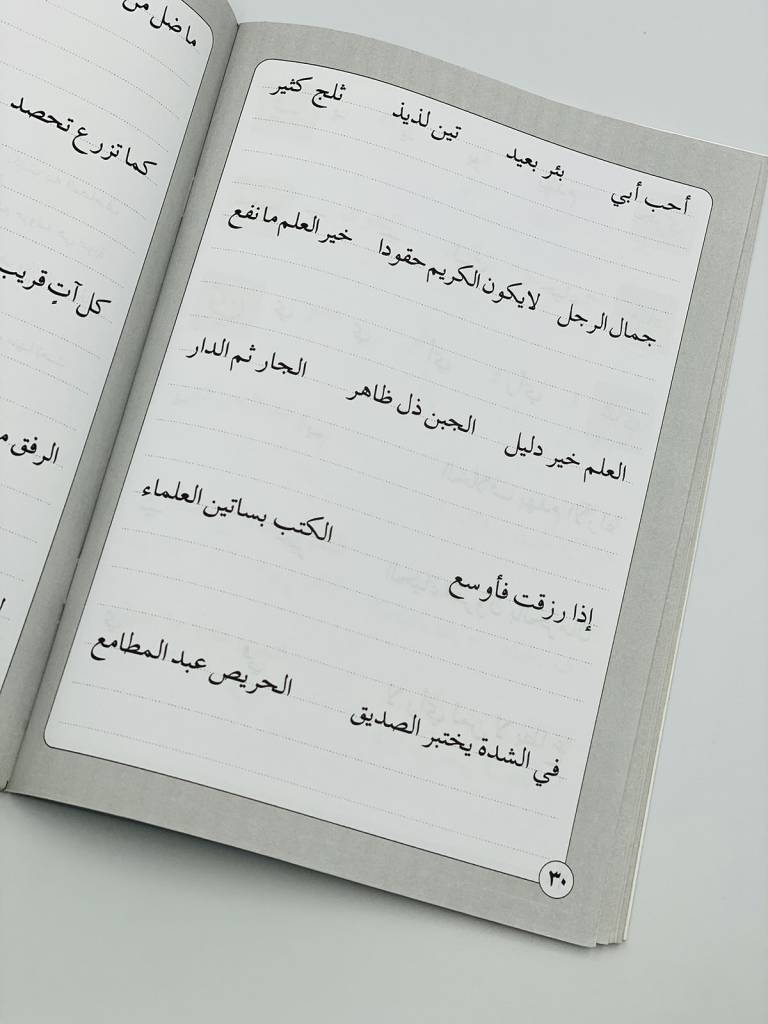 أحب أبي بئر بعيد تين لذيذ ثلج كثير
جمال الرجل لا يكون الكريم حقودا خير العلم ما نفع
العلم خير دليل الجبن ذل ظاهر الجار ثم الدار
إذا رزقت فأوسع الكتب بساتين العلماء
في الشدة يختبر الصديق الحريص عبد المطامع
٣٠
ما ضل من
كما تزرع تحصد
كل آتٍ قريب
الرفق